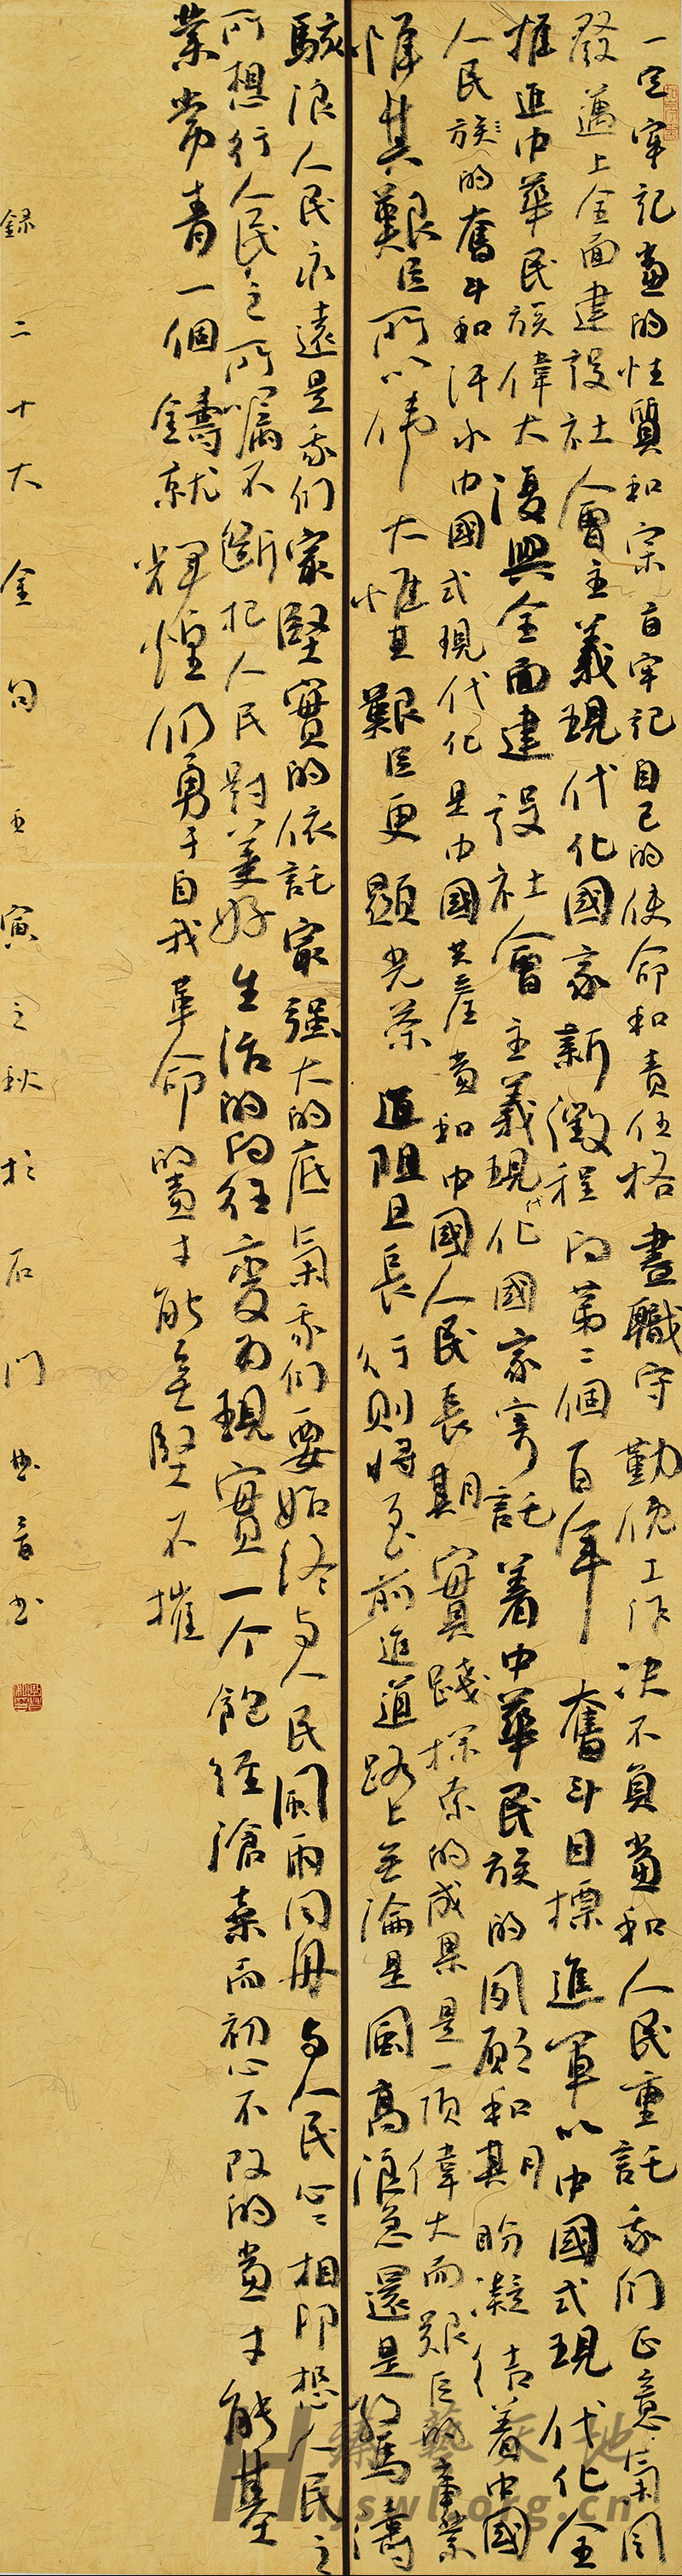 一定牢記黨的性質和宗旨牢記自己的使命和責任恪盡職守勤勉工作决不負黨和人民重託我們正意氣風
發邁上全面建設社會主義現代化國家新徵程向第二個百年奮斗目標進軍以中國式現代化全
推進中華民族偉大復興全面建設社會主義現代化國家寄託着中華民族的夙願和期盼凝结着中國
人民族的奮斗和汗水中國式現代化是中國共產黨和中國人民長期實踐探索的成果是一項偉大而艱巨的事業
惟其艱巨所以偉大惟其艱巨更顯光榮道阻且長行則將至前進道路上無論是風高浪急還是驚濤
駭浪人民永遠是我們最堅實的依託最强大的底氣我們要始终與人民風雨同舟與人民心心相印想人民之
所想行人民之所囑不斷把人民對美好生活的向往變为現實一个飽经滄桑而初心不改的黨才能基
業常青一個鑄就輝煌仍勇于自我革命的黨才能無堅不摧
錄二十大金句壬寅之秋於石門